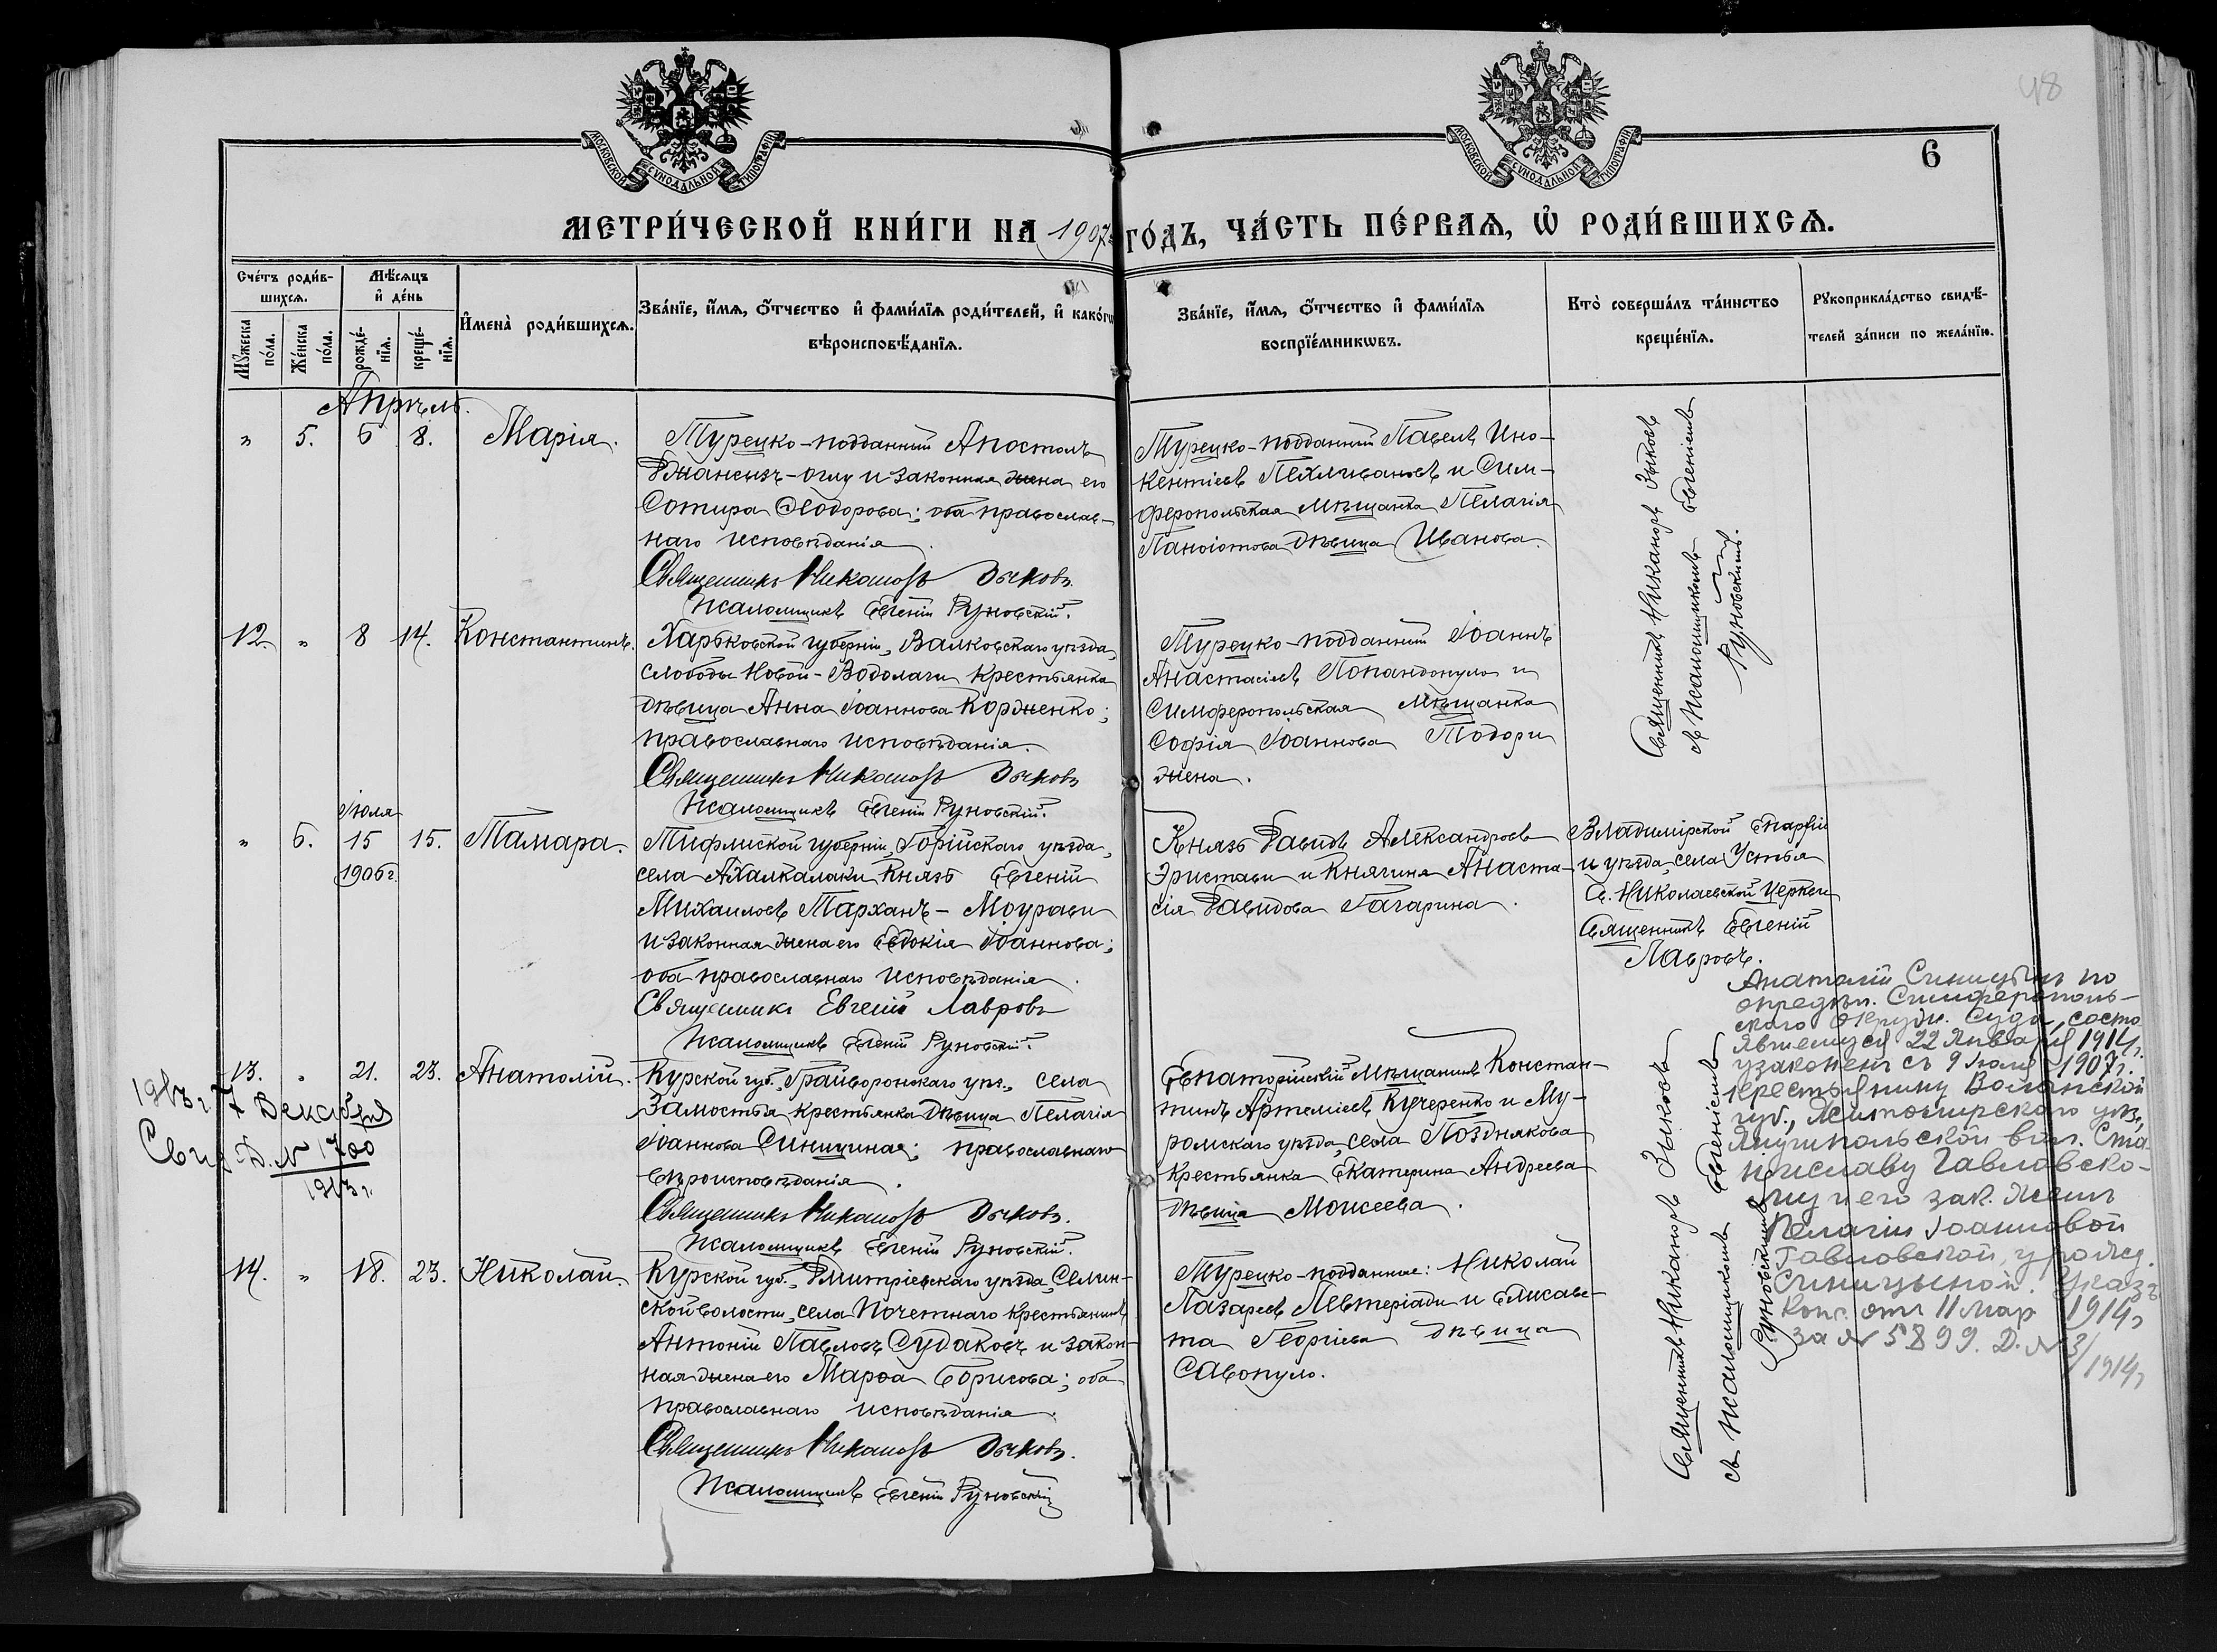 48
МОСКОВСКОЙ СѴНОДАЛЬНОЙ ТИПОГРАФІИ
МОСКОВСКОЙ СѴНОДАЛЬНОЙ ТИПОГРАФІИ
6
МЕТРИ́ЧЕСКОЙ КНИ́ГИ НА 1907 ГО́ДЪ, ЧА́СТЬ ПЕ́РВАѦ, Ѡ҆ РОДИ́ВШИХСѦ.
Сче́тъ роди́в-
шихсѧ.
Мꙋ́жеска
по́ла.
Же́нска
по́ла.
Мѣ́сѧцъ
и҆ де́нь
рожде́-
нїѧ.
креще́-
нїѧ.
И҆мена̀ роди́вшихсѧ.
Зва́нїе, и҆́мѧ, ѻ҆́тчество и҆ фами́лїѧ роди́телей, и҆ како́гѡ
вѣроисповѣ́данїѧ.
Зва́нїе, и҆́мѧ, ѻ҆́тчество и҆ фами́лїѧ
воспрїе́мникѡвъ.
Кто̀ соверша́лъ та́инство
креще́нїѧ.
Рꙋкоприкла́дство свидѣ́-
телей за́писи по жела́нїю.
Апрѣль.
" 5. 6 8. Марія.
Турецко-подданный Апостолъ
Джансызъ-оглу и законная жена его
Сотира Ѳеодорова; оба православ-
наго исповѣданія.
Священникъ Никаноръ Зыковъ.
Псаломщикъ Евгеній Руновскій.
Турецко-подданный Павелъ Ино-
кентіевъ Пехливановъ и Сим-
феропольская мѣщанка Пелагія
Панаіотова дѣвица Иванова.
Священникъ Никаноръ Зыковъ
съ Псаломщикомъ Евгеніемъ
Руновскимъ.
12. " 8 14. Константинъ.
Харьковской губерніи, Валковскаго уѣзда,
слободы Новой-Водолаги крестьянка
дѣвица Анна Іоаннова Корженко;
православнаго исповѣданія.
Священникъ Никаноръ Зыковъ
Псаломщикъ Евгеній Руновскій.
Турецко-подданный Іоаннъ
Анастасіевъ Попандопуло и
симферопольская мѣщанка
Софія Іоаннова Тодори
жена.
Іюля
" 6. 15 15. Тамара.
1906 г.
Тифлиской губерніи, Горійскаго уѣзда,
села Ахалкалаки Князь Евгеній
Михаиловъ Тарханъ-Моурави
и законная жена его Евдокія Іоаннова;
оба православнаго исповѣданія.
Священникъ Евгеній Лавровъ
Псаломщикъ Евгеній Руновскій.
Князь Давидъ Александровъ
Эристави и Княгиня Анаста-
сія Давидова Гагарина.
Владимірской Епархіи
и уѣзда, села Устья
Св. Николаевской Церкви
Священникъ Евгеній
Лавровъ.
13. " 21. 23. Анатолій.
1913 г. 7 Декабря
Свид. Д. № 1700
1913 г.
Курской губ., Грайворонскаго уѣз., села
Замостья крестьянка дѣвица Пелагія
Іоаннова Синицина; православнаго
вѣроисповѣданія.
Священникъ Никаноръ Зыковъ.
Псаломщикъ Евгеній Руновскій.
Евпаторійскій мѣщанинъ Констан-
тинъ Артеміевъ Кучеренко и Му-
ромскаго уѣзда, села Позднякова
крестьянка Екатерина Андреева
дѣвица Моисеева.
Священникъ Никаноръ Зыковъ
съ Псаломщикомъ Евгеніемъ
Руновскимъ
Анатолій Синицынъ по
опредѣл. Симферополь-
скаго Окружн. Суда, состо-
явшемуся 22 Января 1914 г.
узаконенъ съ 9 Іюля 1907 г.
крестьянину Волынской
губ., Житомирскаго уѣз.,
вол. Ста-
ниславу Гавловско-
му и его зак. женѣ
Пелагіи Іоанновой
Гавловской, урожд.
Синицыной. Указъ
Конс. отъ 11 мар 1914 г.
за № 5899. Д. № 3/
1914 г.
14. " 18. 23. Николай.
Курской губ., Дмитріевскаго уѣзда, Селин-
ской волости, села Почетнаго крестьянинъ
Антоній Павловъ Судаковъ и закон-
ная жена его Марѳа Борисова; оба
православнаго исповѣданія.
Священникъ Никаноръ Зыковъ.
Псаломщикъ Евгеній Руновскій
Турецко-подданные: Николай
Лазаревъ Левтеріади и Елисаве-
та Георгіева дѣвица
Савопуло.